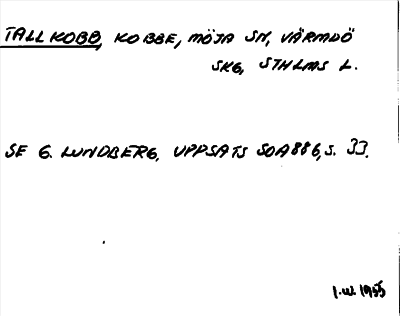 TALLKOBB, KOBBE, MÖJA SN, VÄRMDÖ
SKG, STHLMS L.
SE G. LUNDBERG, UPPSATS SOA886, S. 33.
1955